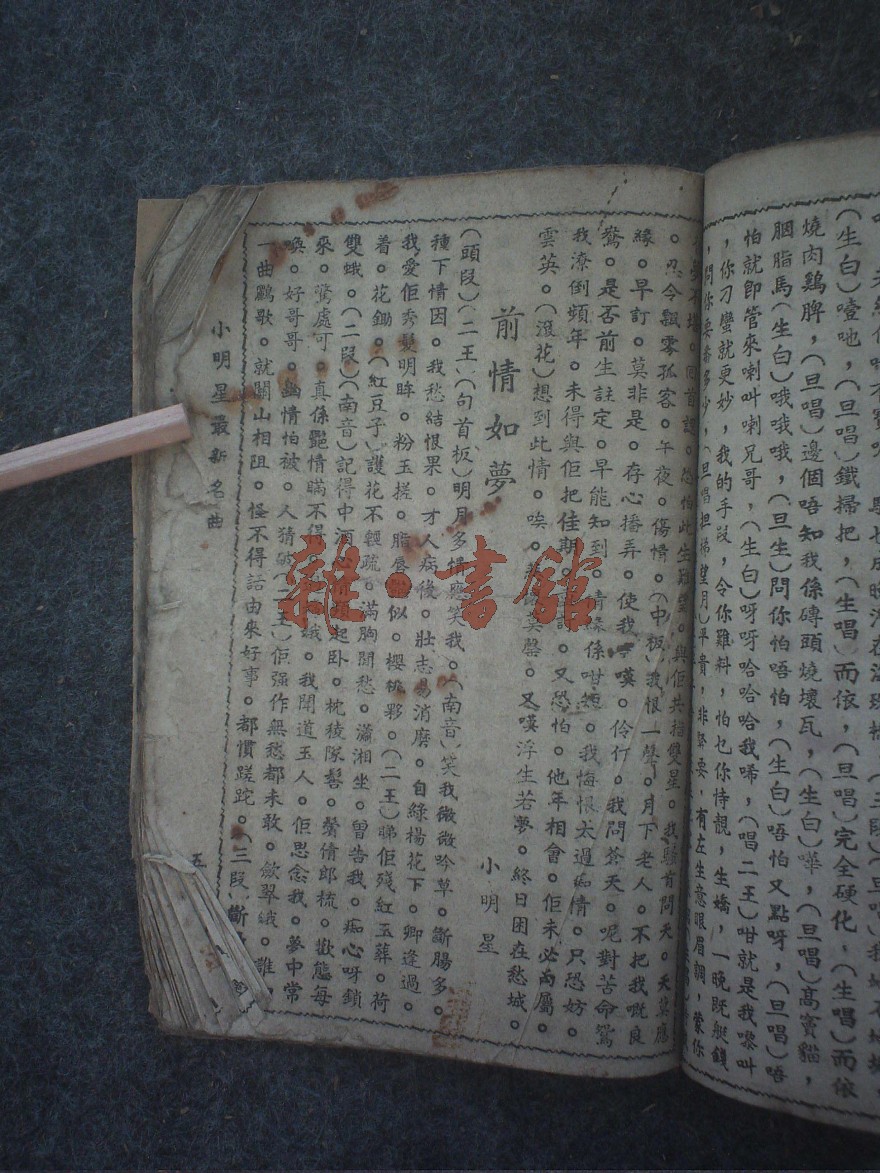 (生白)噎吔,(旦唱)鐵掃把,(生唱)而依,(旦唱)完全硬化,(生唱)而依
燒肉鷄脾,(旦唱)邊個唔知我係磚頭燒壞瓦,(生白)嘩,(旦唱)高竇貓,
胭脂馬(生白)哦哦哦,(旦生)問你怕唔怕,(生白)唔怕又點呀,(旦唱)唔
怕就即管來喇叫喇兄哥,(生白)呀呀哈哈哈我唏,(唱二王)咁就是我嚟叫
,你刁蠻就更妙,我的手段,令你難料,怕乜你恃靚,生嬌,一晚既艇錢
,問你要番多少,(旦唱担梯望月)平貴,非緊要,有左生意眼眉調,
。忍令飄零孤客。午夜。傷情。(中板)我恨一聲。月下老人。不把我嘅良
緣。早訂。莫非是。存心播弄。使我。嘆。伶仃。我問蒼天。呢對苦命鴛
鴦。是否前生註定。早能知到。情緣係咁短。我悔恨太過痴情。只恐妨。
我潦倒頻年。未得與佢把佳期。訂。又恐怕。他年相會。佢未必尚屬。
雲英。(滾花)想到此情。唉。莫磬。又嘆浮生若夢。終日困在愁城。
前情如夢
小明星
(頭段)(二王)(句首板)明月多情應笑我。(南音)笑我微微吟草。斷腸多。
種下情因。我愁結恨果。才人病後。壯志易消磨。自綠楊花下。卿逢過。
我愛佢秀髮明眸。粉玉搓。脂唇似。櫻桃夥。(二王)睇佢殘紅玉葬。荷
着。花鋤。(紅豆子)護花不輕疏。滿胸閒愁。瀟湘坐。曾告我。痴心呀鎖
雙蛾。(二段)(南音)記得中酒起卧。枕稜隊髻。鬢倩郎梳。歡態每
來。鶯處可。真係艷情瞞不得。娥。我聞道玉人。佢思念我。夢中常
喚。好哥哥。幽情怕被。人猜破(二王)佢强作無愁都未敢。斂翠娥。誰
一曲鸝歌。就關山相阻。怪不得話由來好事。都慣蹉跎。(三段)斷
小明星最新名曲
五
雜·書館